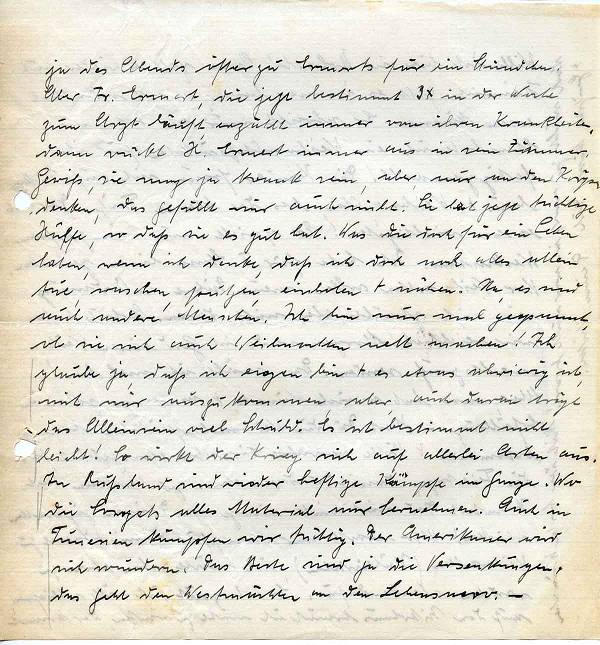 ja des Abends öfter zu Ernerts für ein Stündchen.
Aber Fr. Ernert, die jetzt bestimmt 3x in der Woche
zum Arzt läuft, erzählt immer von ihren Krankheiten,
dann rückt H. Ernert immer aus in sein Zimmer.
Gewiß, sie mag ja krank sein, aber nur an den Körper
denken, das gefällt mir auch nicht. Sie hat jetzt tüchtige
Hülfe, so daß sie es gut hat. Was die doch für ein Leben
haben, wenn ich denke, daß ich doch noch alles allein
tue, waschen, putzen, einholen + nähen. Na, es sind
auch andere Menschen. Ich bin nur mal gespannt,
ob sie sich auch Weihnachten nett machen! Ich
glaube ja, daß ich eigen bin + es etwas schwierig ist,
mit mir auszukommen, aber auch daran trägt
das Alleinsein viel Schuld. Es ist bestimmt nicht
leicht! So wirkt der Krieg sich auf allerlei Arten aus.
In Rußland sind wieder heftige Kämpfe im Gange. Wo
die Sowjets alles Material nur hernehmen. Auch in
Tunesien kämpfen wir tüchtig. Der Amerikaner wird
sich wundern. Das Beste sind ja die Versenkungen,
das geht den Westmächten an den Lebensnerv. —